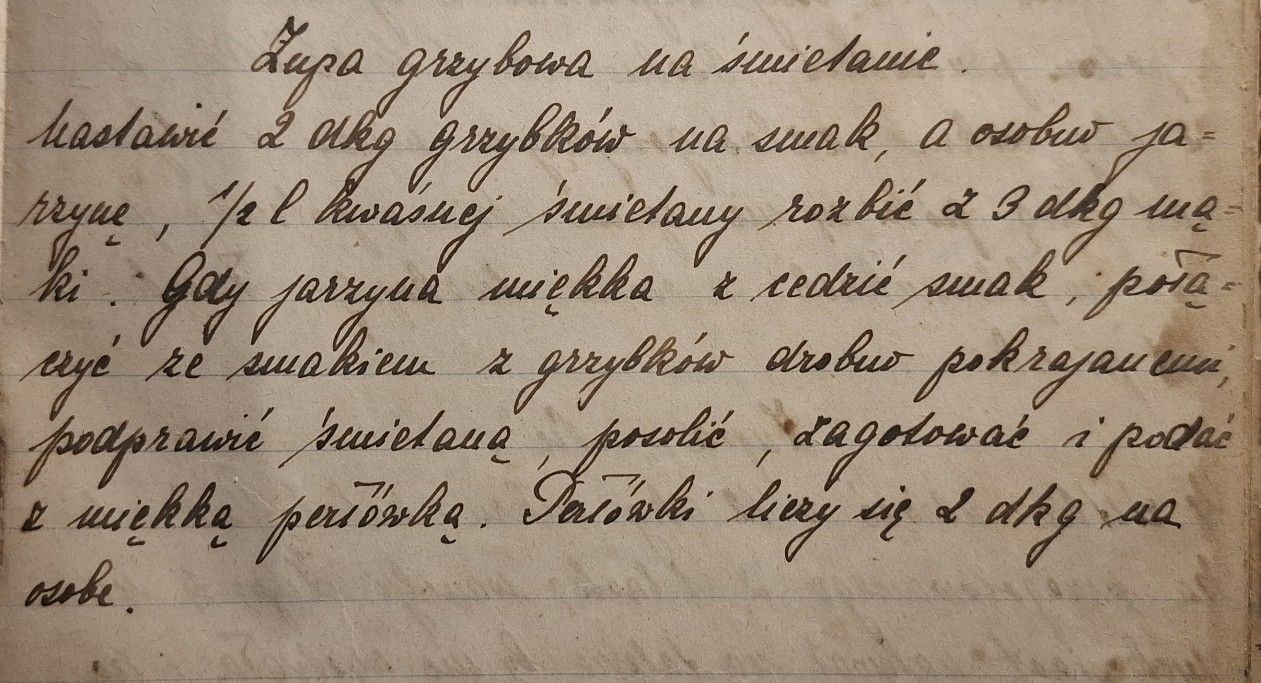 Zupa grzybowa na śmietanie.
Nastawić 2 dkg grzybków na smak, a osobno ja=
rzynę, 1/2 l kwaśnej śmietany rozbić z 3 dkg mą=
ki. Gdy jarzyna miękka z cedzić smak, połą=
czyć ze smakiem z grzybków drobno pokrajanemi,
podprawić śmietaną, posolić, zagotować i podać
z miękką perłówką. Perłówki liczy się 2 dkg na
osobe.